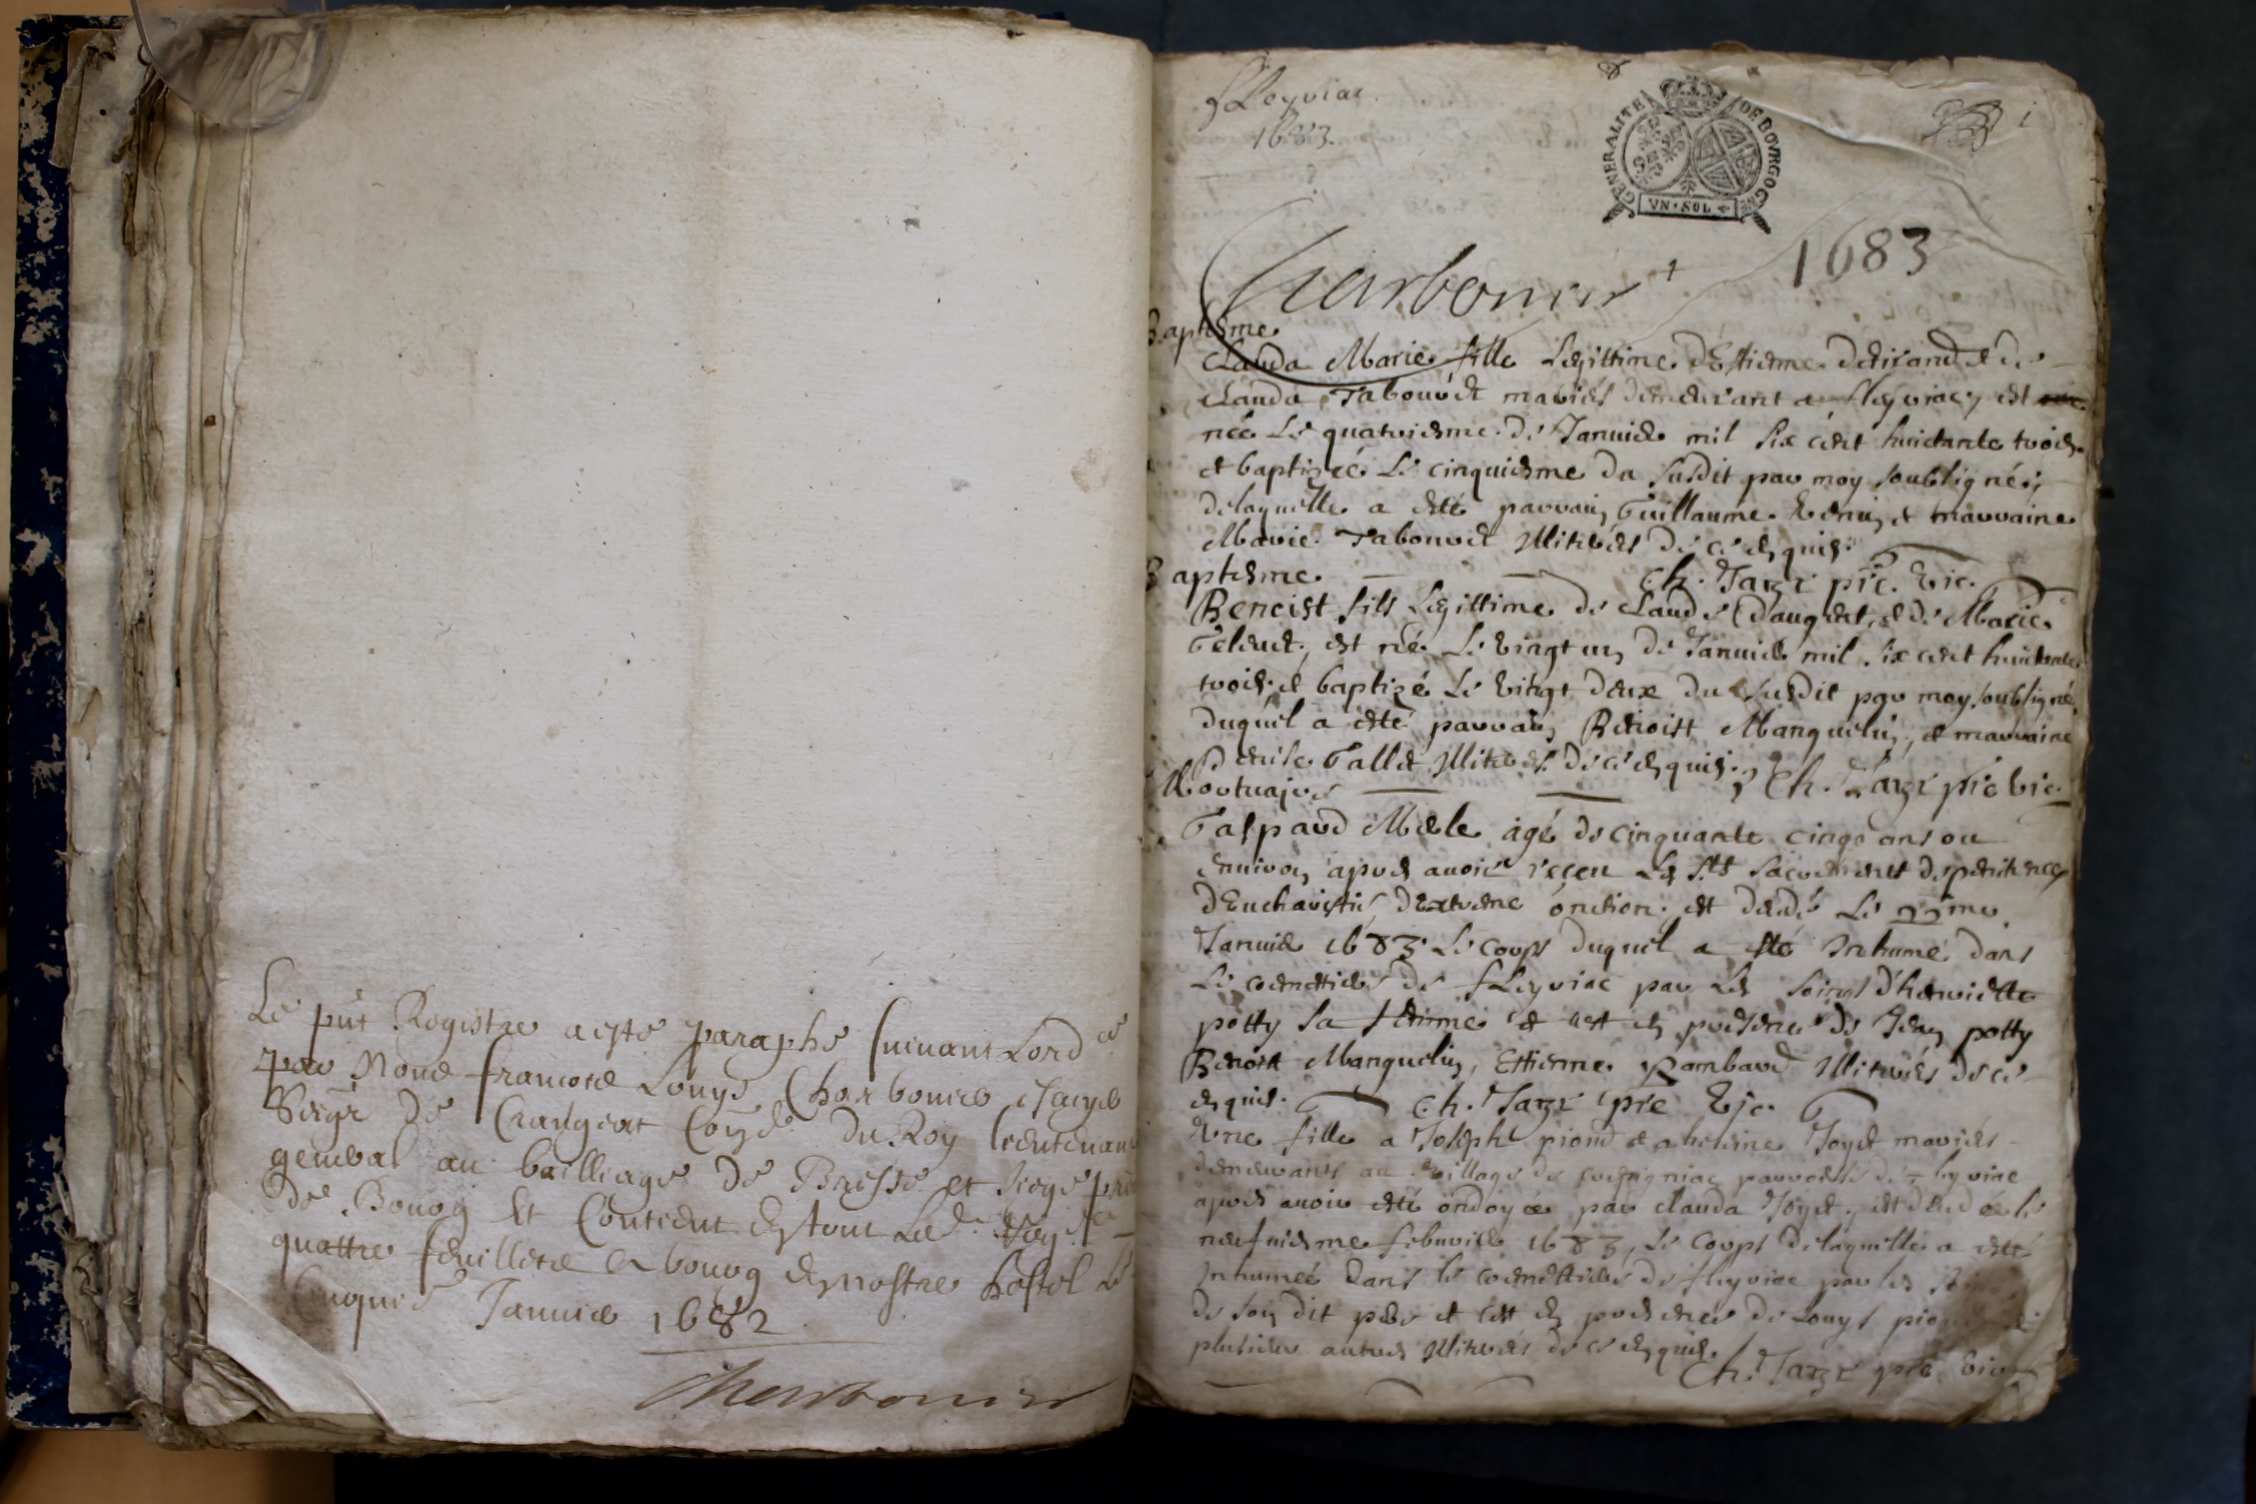 Le pnt Registre a esté paraphé suivant Lordce
par Nous francois Louys Charbonier escuyer
Seigr de Crangeat Coner du Roy lieutenant
general au bailliage de Bresse et siege pnal
de Bourg Et Contient en tout
quattre feuillets a bourg en nostre hostel le
Janvier 1682
Charbonier
fLeyriac
1683.
GENERALITE DE BOVRGOGNE
VN SOL
1
1683
Charbonier
Baptesme
Clauda Marie fille Legittime d'Estienne et de
Clauda Tabouret mariés demeurant a fleyriac, est
née Le quatriesme de Janvier mil six cent huictante trois
et baptizée Le cinquiesme du susdit par moy soubsigné,
delaquelle a esté parrain Guillaume et marraine
Marie Tabouret Illiterés de ce enquis.
Ch. pre. vic.
Baptesme
Benoist fils Legittime de Claude et de Marie
est né Le vingt un de Janvier mil six cent huictante
trois et baptizé Le vingt deux du susdit par moy soubsigné,
duquel a esté parrain Benoist Manguelin, et marraine
Denise Gallet Illiterés de ce enquis. Ch. pre vic.
Mortuaire
Gaspard agé de cinquante cinq ans ou
environ apres avoir receu Les Sts Sacrements de penitence
d'Eucharistie d'Extreme onction est decedé Le 22me
Janvier 1683 Le corps duquel a esté Inhumé dans
Le cemettiere de fLeyriac par Les soings d'henriette
potty sa femme et c'est en presence de Jean potty
Benoist Manguelin, Estienne Rambaud Illiterés de ce
enquis. Ch. pre vic.
Une fille a Joseph piond et a Joyet mariés
demeurants au village de parroisse de fleyriac
apres avoir esté ondoyée par Clauda Joyet, est decedée le
neufuiesme febvrier 1683, Le Corps delaquelle a esté
Inhumée dans le cemettiere de fleyriac par les
de son dit pere et c'est en presence de Louys
plusieurs autres Illiterés de ce enquis.
Ch. pre vic.